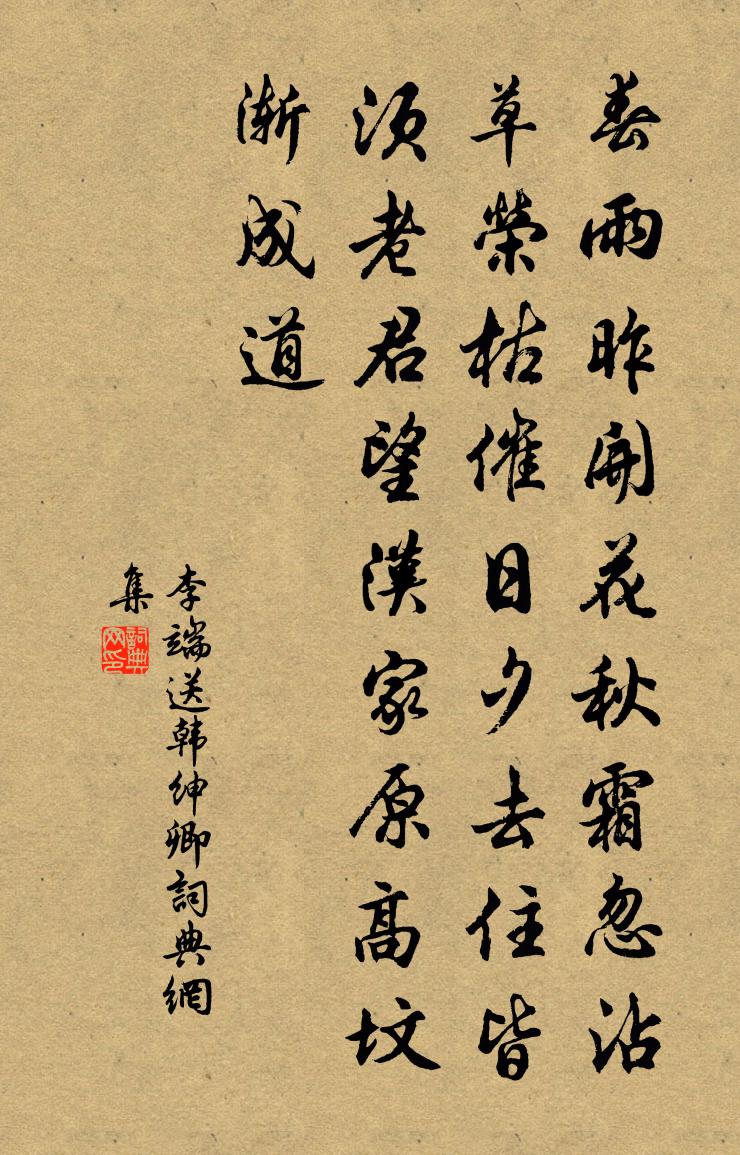 春雨昨開花秋霜忽沾
草榮枯催日夕去住皆
須老君望漢家原高墳
漸成道
李端送韩绅卿詞典網
集
詞典网印